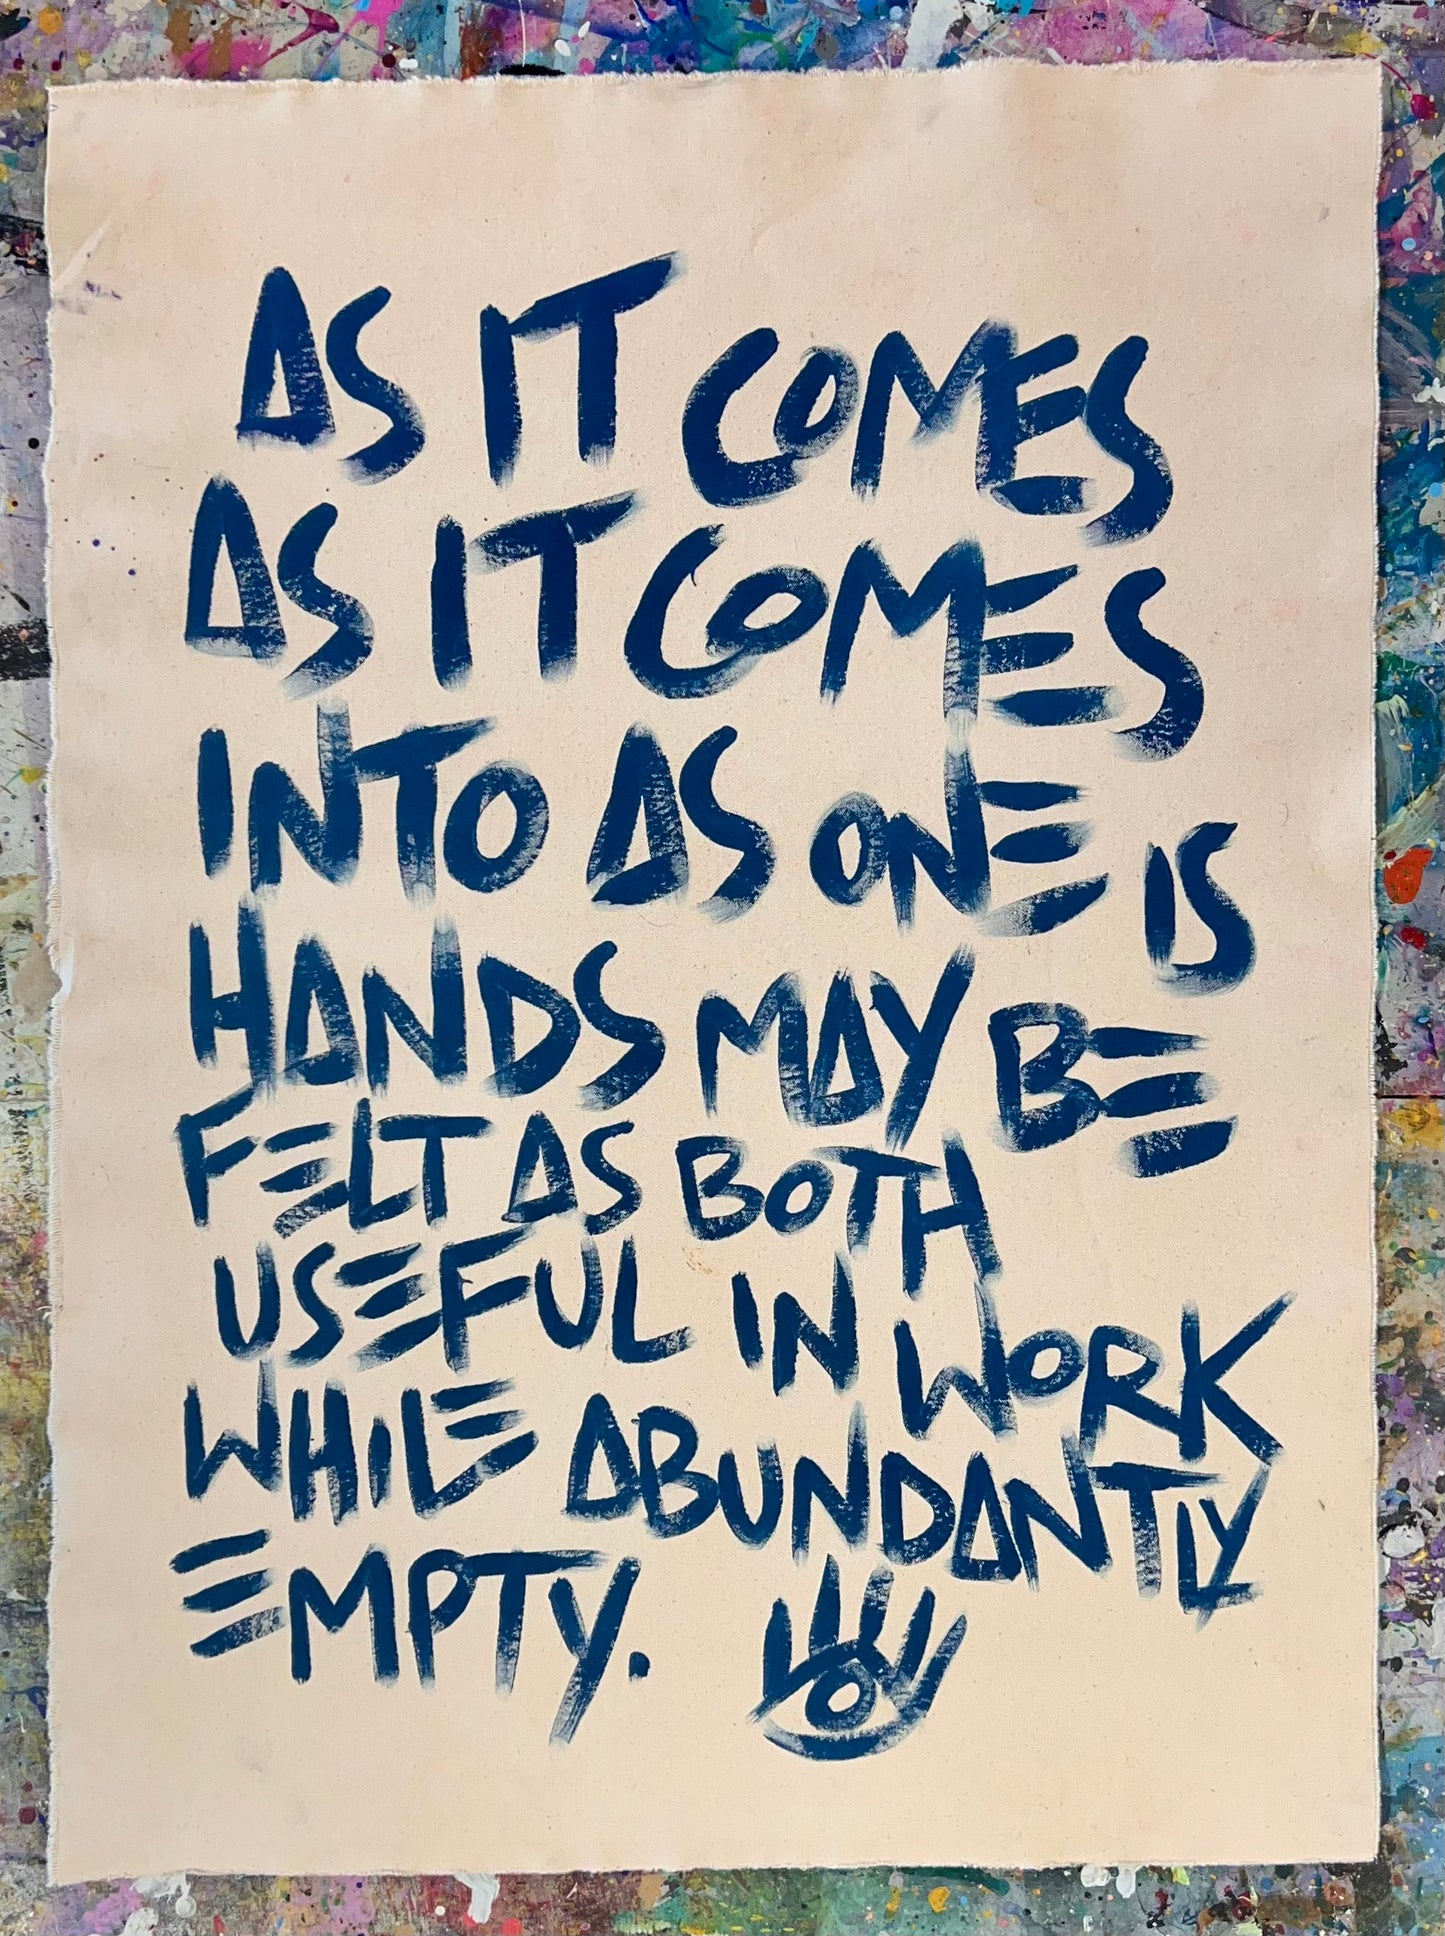 AS IT COMES
AS IT COMES
INTO AS ONE IS
HANDS MAY BE
FELT AS BOTH
USEFUL IN WORK
WHILE ABUNDANTLY
EMPTY.